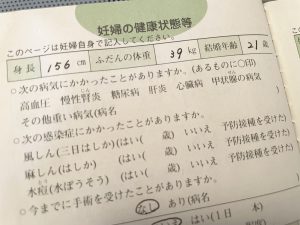 妊婦の健康状態等
このページは妊婦自身で記入してください。
身長 156 cm ふだんの体重 39 kg 結婚年齢 21 歳
○次の病気にかかったことがありますか。(あるものに○印)
高血圧 慢性腎炎 糖尿病 肝炎 心臓病 甲状腺の病気
その他重い病気(病名
○次の感染症にかかったことがありますか。
風しん(三日はしか) (はい( 歳) いいえ 予防接種を受けた)
麻しん(はしか) (はい( 歳) いいえ 予防接種を受けた)
水痘(水ぼうそう) (はい( 歳) いいえ 予防接種を受けた)
○今までに手術を受けたことがありますか。
なし あり(病名
はい(1日 本)